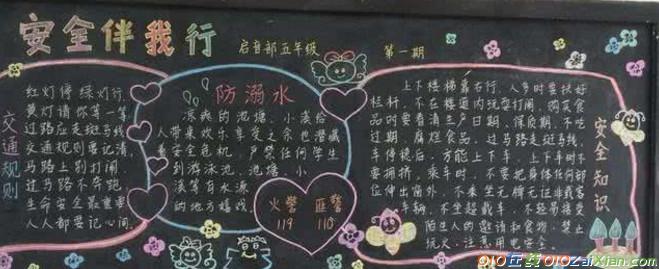 安全伴我行
启音部五年级
第一期
交通规则
红灯停绿灯行,
黄灯请你等一等,
过路应走斑马线,
交通规则要记清,
马路上别打闹,
过马路不奔跑,
生命安全最重要,
人人都要记心间。
防溺水
凉爽的池塘、小溪给
人带来欢乐享受之余也潜藏
着安全危机,严禁任何学生
到游泳池、池塘、小
溪等有水源
的地方嬉戏。
火警
119
匪警
110
安全知识
上下楼梯靠右行,人多时要扶好
栏杆,不在楼道内玩耍打闹。购买食
品时要看清生产日期、保质期,不吃
过期、腐烂食品。过马路走斑马线,
车停稳后,方能上下车,上下车时不
要拥挤,乘车时,不要把身体任何部
位伸出窗外,不乘坐无牌无证非载客
车辆,不坐超载车,不轻易接受
陌生人的邀请和食物,禁止
玩火,注意用电安全。
010在线010ZaiXian.com